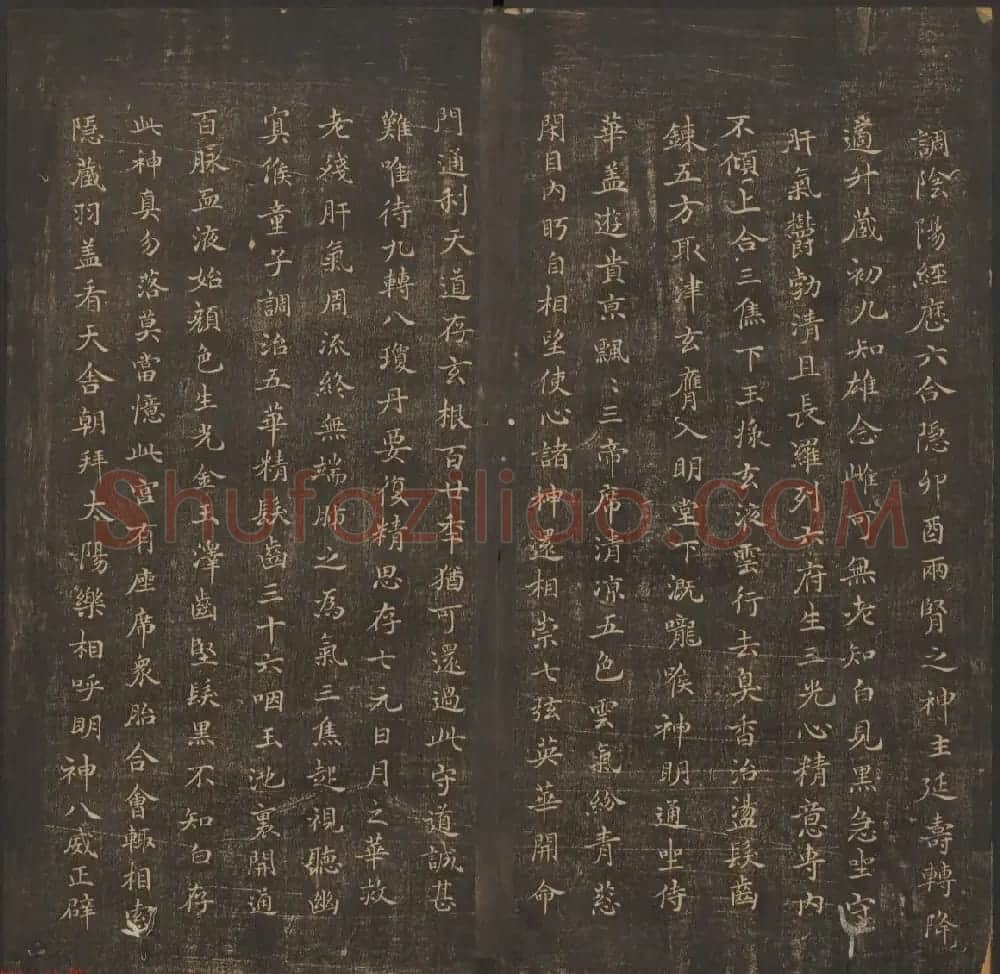 調陰陽經歷六合隱卯酉兩腎之神主延壽轉降
適升藏初九知雄念雌可無老知白見黑急坐守
肝氣鬱勃清且長羅列六府生三光心精意專内
不傾上合三焦下玉漿玄液雲行去臭香治盪髮齒
鍊五方取津玄膺入明堂下溉嚨喉神明通坐侍
華盖遊貴京飄〻三帝席清涼五色雲氣紛青葱
閉目内眄自相望使心諸神還相崇七弦英華開命
門通利天道存玄根百廿年猶可還過此守道誠甚
難唯待九轉八瓊丹要復精思存七元日月之華救
老殘肝氣周流終無端肺之爲氣三焦起視聽幽
冥候童子調治五華精髮齒三十六咽玉池裏開通
百脉血液始顔色生光金玉澤齒堅髮黑不知白存
此神真勿落莫當憶此宫有座席衆胎合會轉相索
隱藏羽盖看天舍朝拜太陽樂相呼明神八威正辟
Shufaziliao.COM